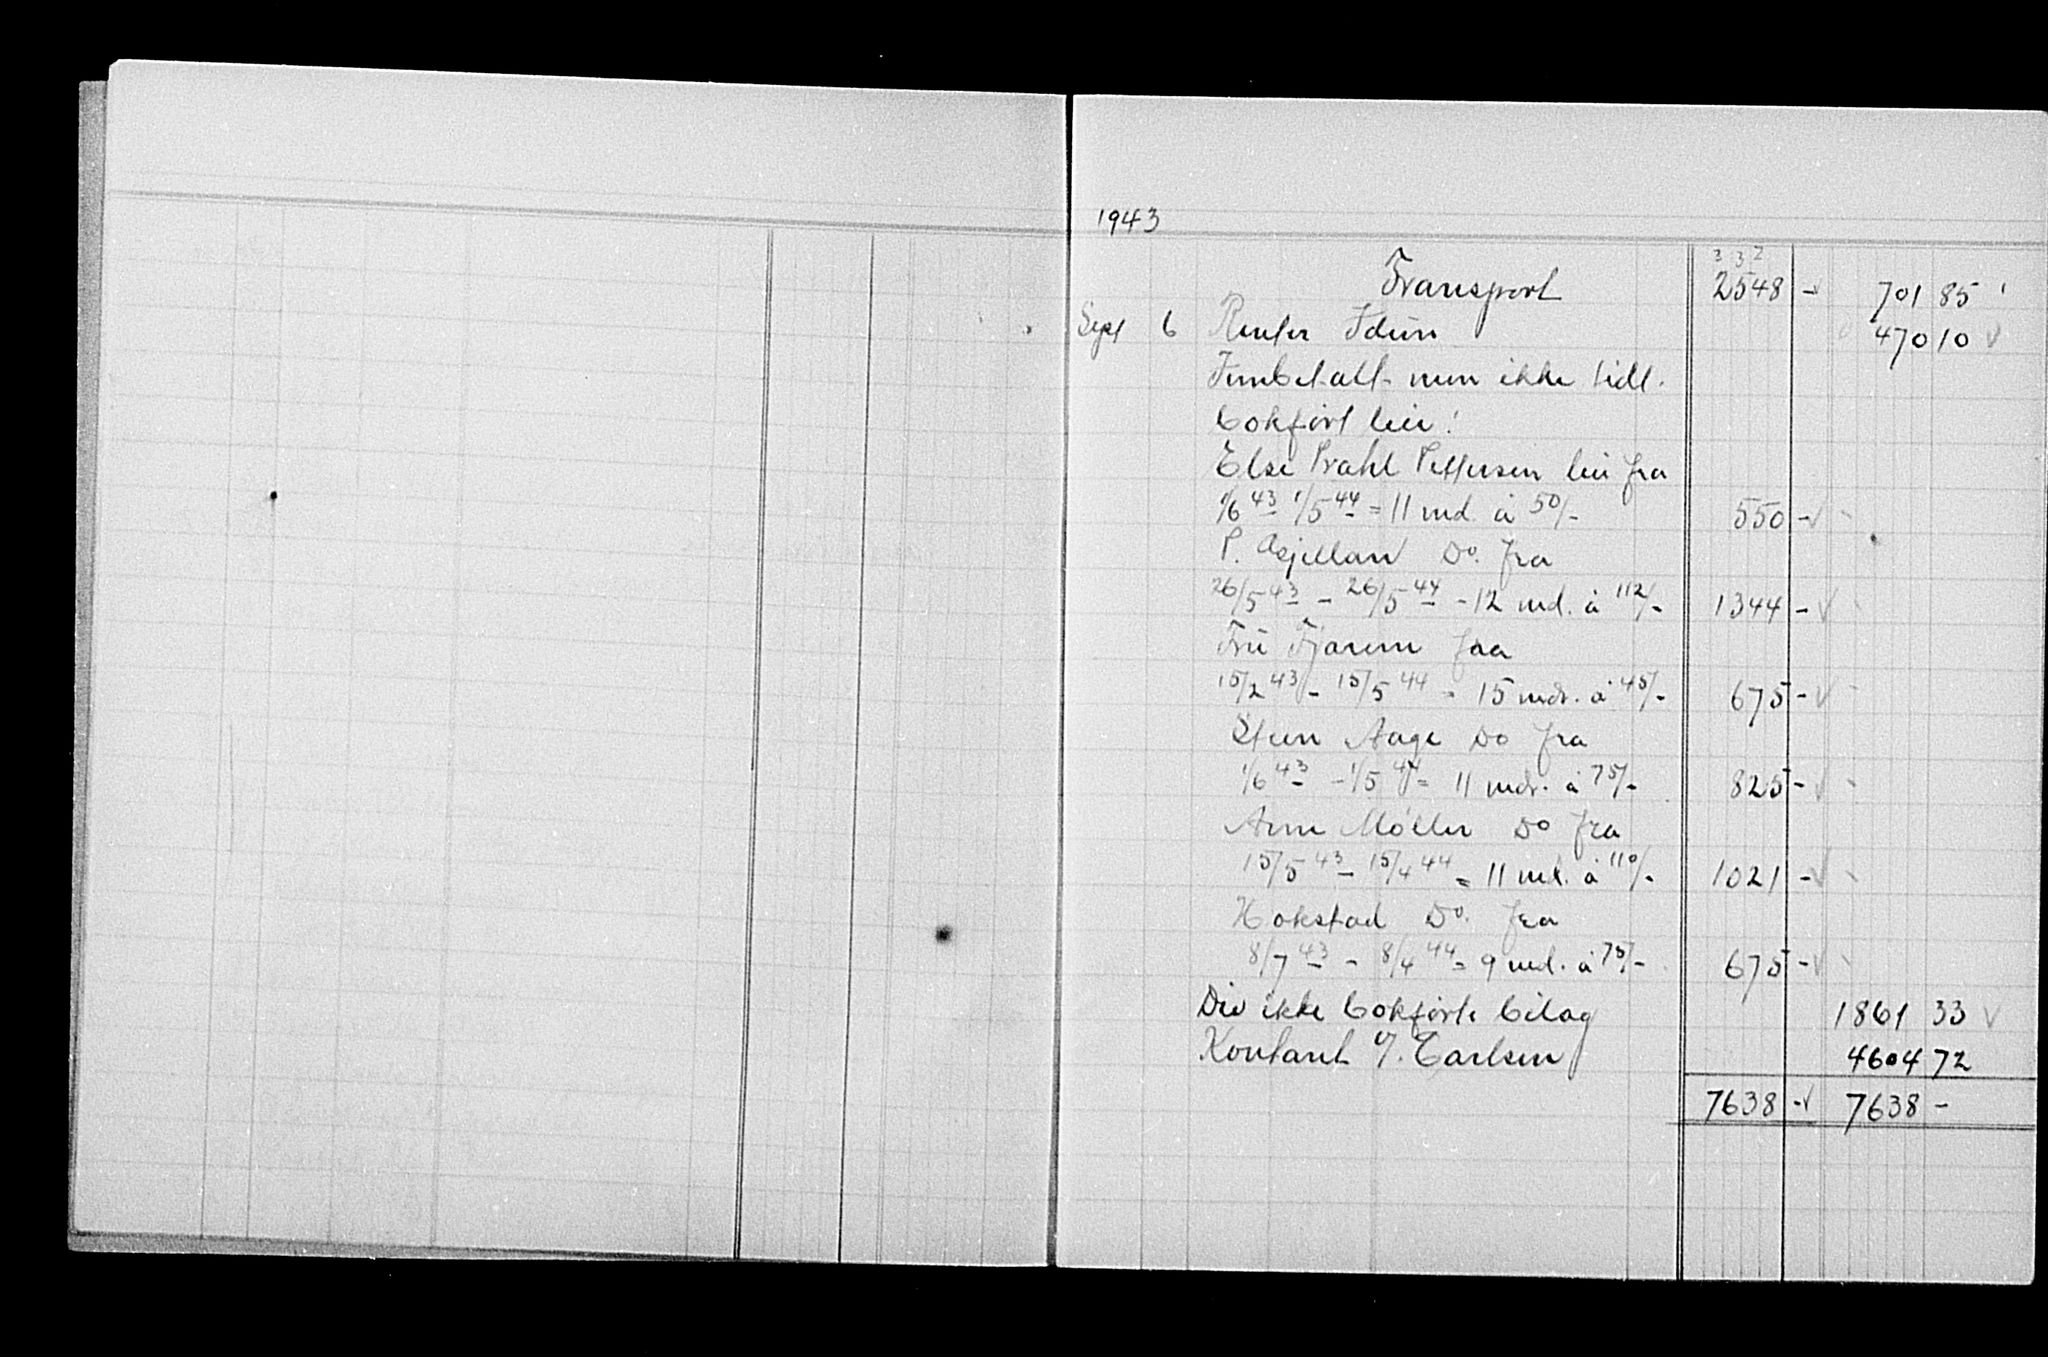 1943
3 3 2
Transport 2548 - 701 85
Sept 6 Renter Idun 470 10
Innbetalt men ikke tidl.
bokført leie:
Else Prahl Pettersen leie fra
1/6 43 1/5 44 = 11 md. à 50/- 550 -
P. Asjellan Do. fra
26/5 43 - 26/5 44 - 12 md. à 112/- 1344 -
Fru Fjærem fra
15/2 43 - 15/5 44 - 15 mdr. à 45/- 675 -
Steen Aage Do fra
1/6 43 - 1/5 44 = 11 mdr. à 75/- 825 -
Arne Møller Do fra
15/5 43 - 15/4 44 = 11 md. à 110/- 1021 -
Hokstad Do. fra
8/7 43 - 8/4 44 = 9 md. à 75/- 675 -
Div ikke bokførte bilag 1861 33
Kontant v/. Carlsen 4604 72
7638 - 7638 -